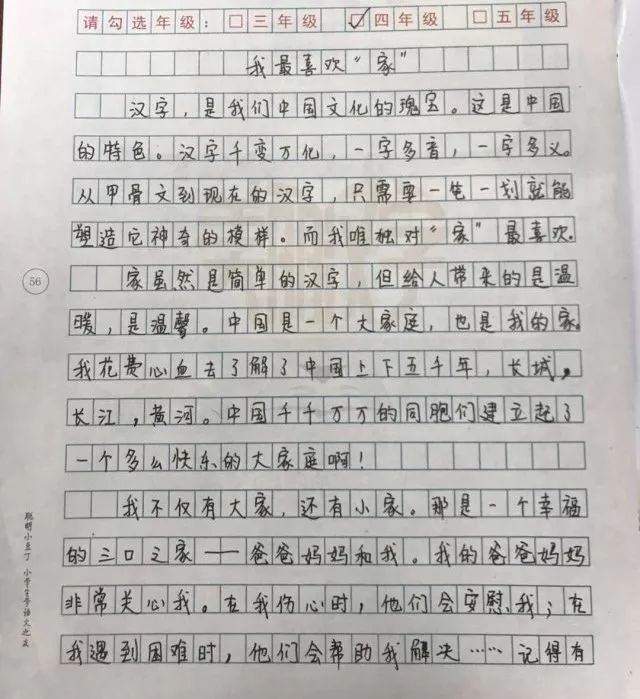 请勾选年级：□三年级 ☑四年级 □五年级
我最喜欢“家”
汉字，是我们中国文化的瑰宝。这是中国
的特色。汉字千变万化，一字多音，一字多义。
从甲骨文到现在的汉字，只需要一笔一划就能
塑造它神奇的模样。而我唯独对“家”最喜欢.
家虽然是简单的汉字，但给人带来的是温
暖，是温馨。中国是一个大家庭，也是我的家.
我花费心血去了解了中国上下五千年，长城，
长江，黄河。中国千千万万的同胞们建立起了
一个多么快乐的大家庭啊！
我不仅有大家，还有小家。那是一个幸福
的三口之家——爸爸妈妈和我。我的爸爸妈妈
非常关心我。在我伤心时，他们会安慰我；在
我遇到困难时，他们会帮助我解决……记得有
56
聪明小豆丁 小学生秀语文之美